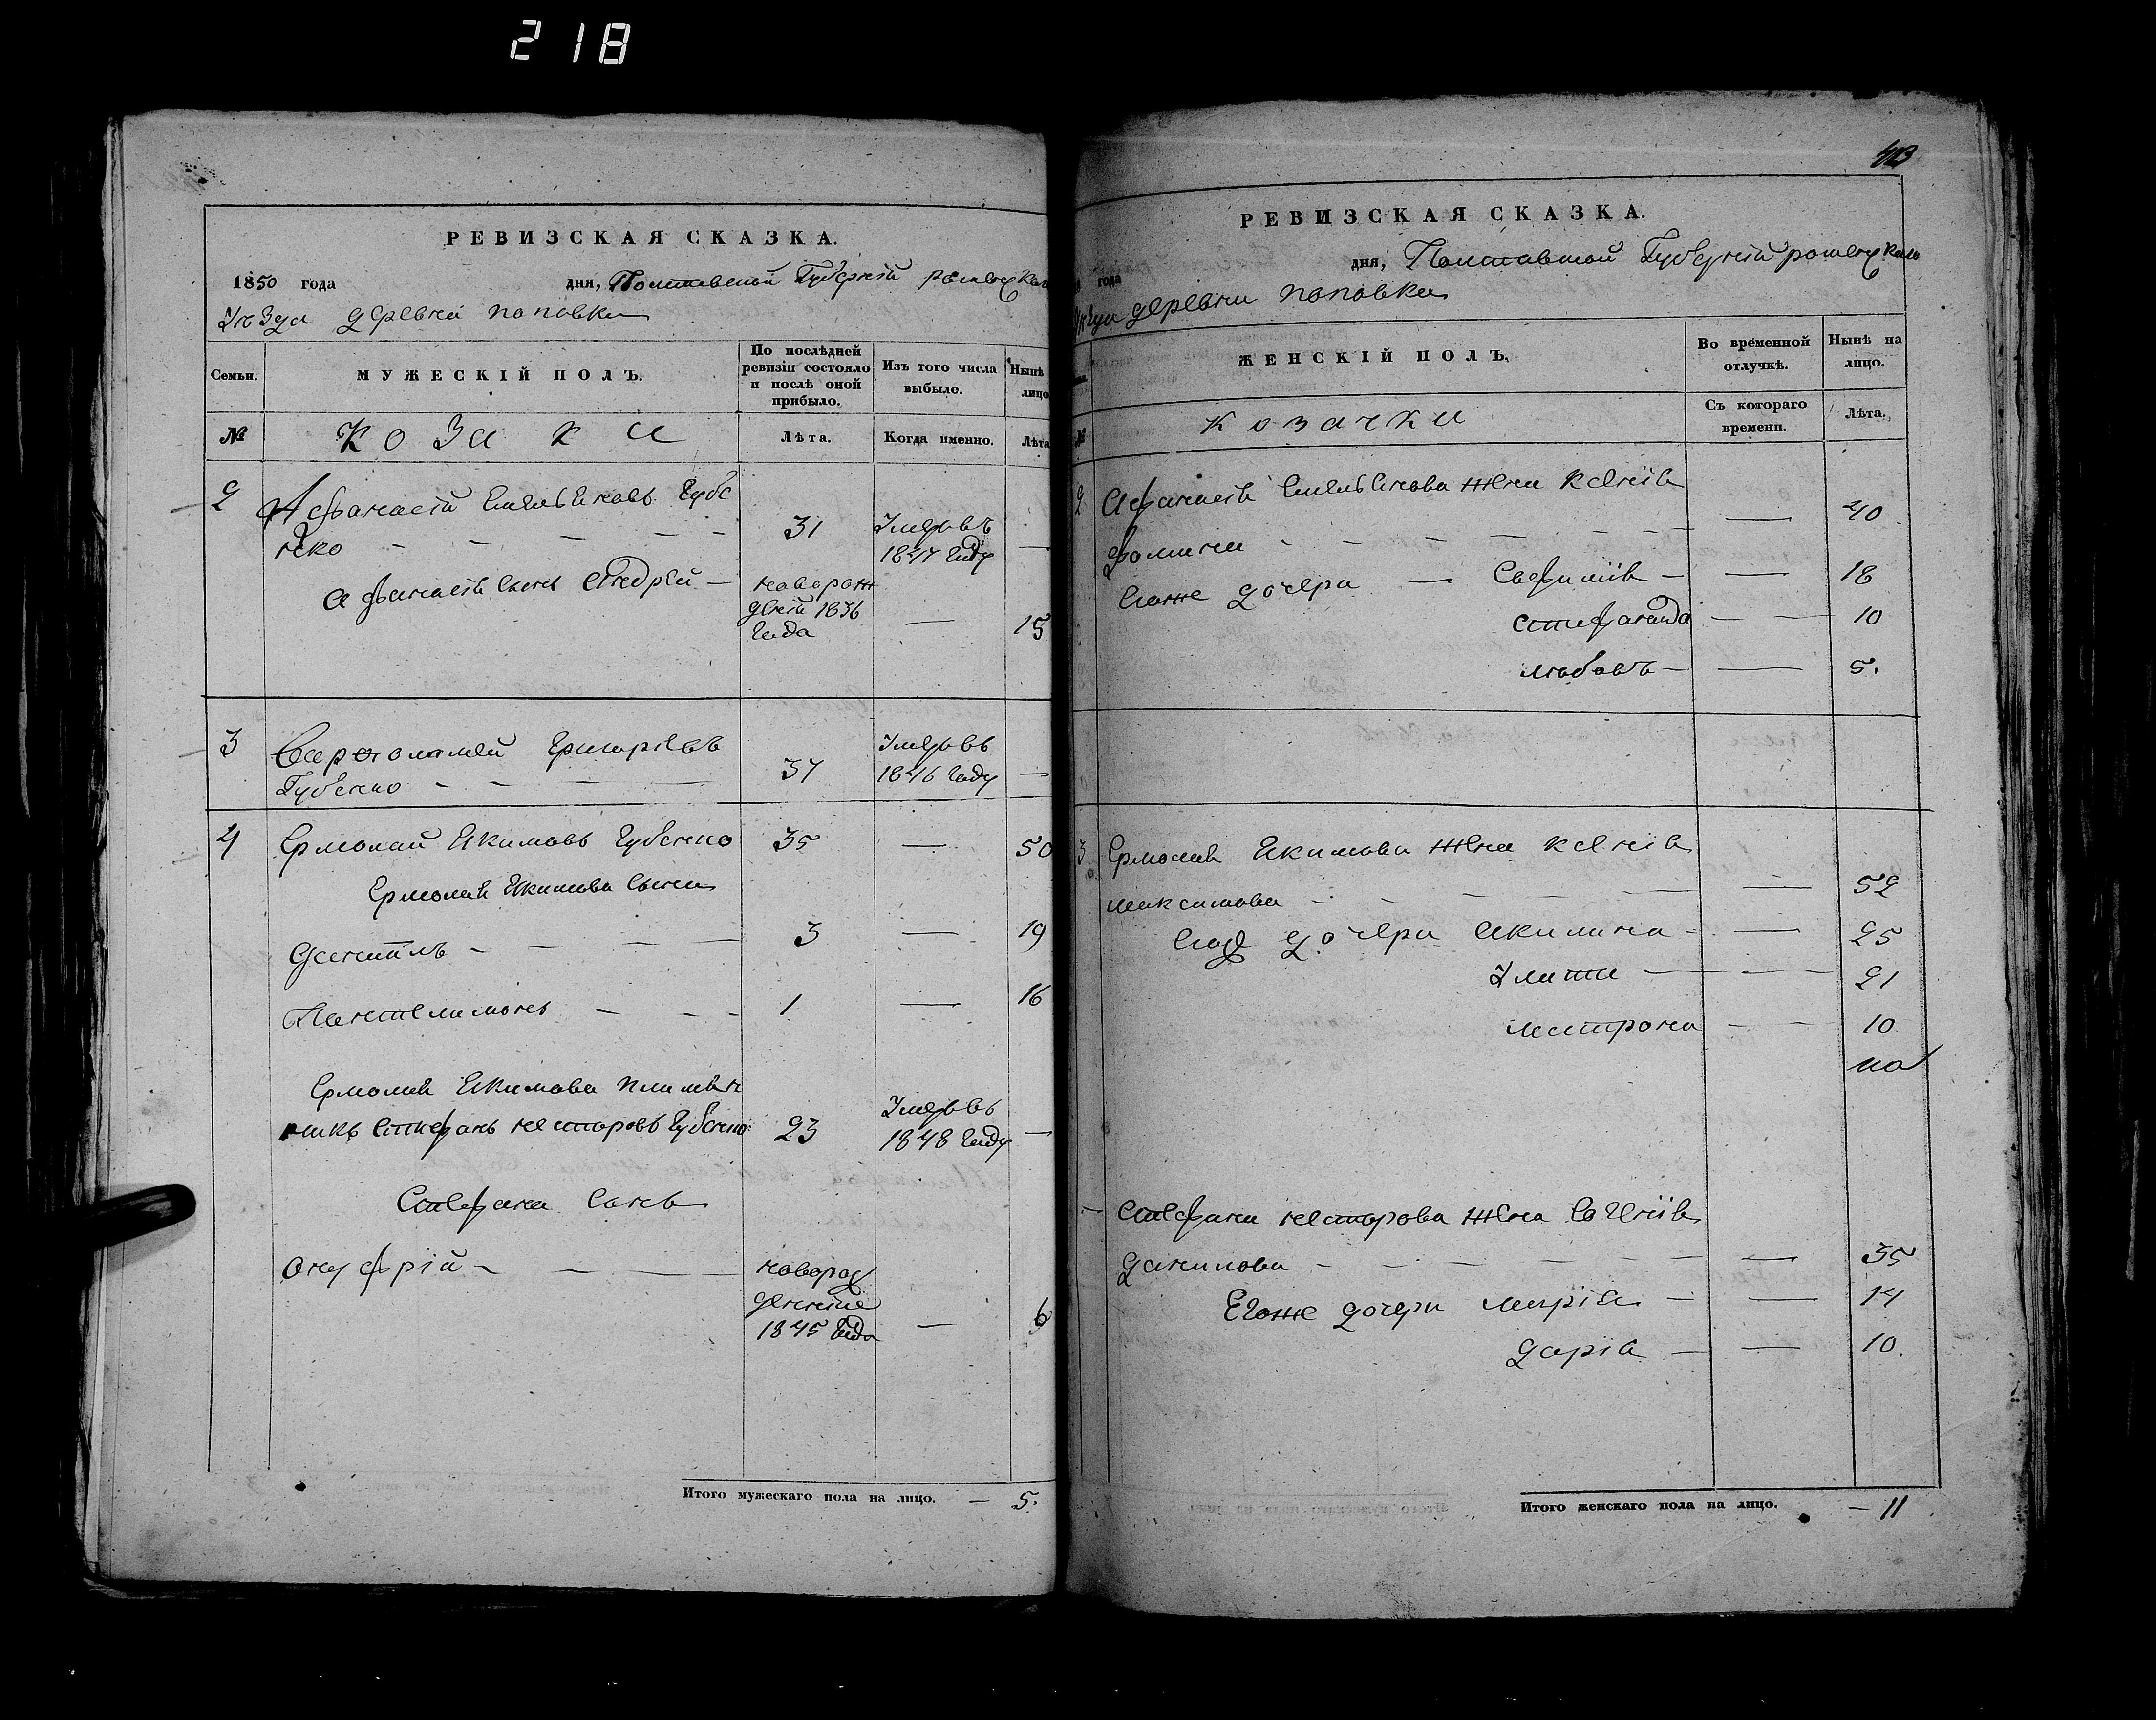 218
РЕВИЗСКАЯ СКАЗКА.
1850 года дня, Полтавской Губерній роменскаго
Уѣзда деревни поповки
Семьи. МУЖЕСКІЙ ПОЛЪ. По послѣдней ревизіи состояло и послѣ оной прибыло. Изъ того числа выбыло. Нынѣ лицо
№ Козаки Лѣта. Когда именно. Лѣта
2 Афанасій Емельяновъ Губе
нко 31 Умеръ въ 1847 году —
Афанасія сынъ Андрей — новорож денъ 1836 года — 15
3 Варфоломей Григоріевъ
Губенко 37 Умеръ въ 1846 году —
4 Ермолай Якимовъ Губенко 35 — 50
Ермолая Якимова сыны
3 — 19
Пантелимонъ 1 — 16
Ермолая Якимова племян
никъ Стефанъ несторовъ Губенко 23 Умеръ въ 1848 году —
Стефана сынъ
Онуфрій — новорож денный 1845 года — 6
Итого мужескаго пола на лицо. — 5.
РЕВИЗСКАЯ СКАЗКА.
года дня, Полтавской Губерній роменскаго
деревни поповки
ЖЕНСКІЙ ПОЛЪ. Во временной отлучкѣ. Нынѣ на лицо.
№ козачки Съ котораго времени. Лѣта.
2 Афанасія Емельянова жена Ксенія
Фомина — 40
Егоже дочери — Евфимія — — 18
10
любовъ — — 5.
3 Ермолая Якимова жена Ксенія
максимова — 52
дочери Акилина — — 25
Улита — — 21
10
Стефана несторова жена Евгенія
данилова — 35
Егоже дочери марія — — 14
дарія — — 10.
Итого женскаго пола на лицо. — 11